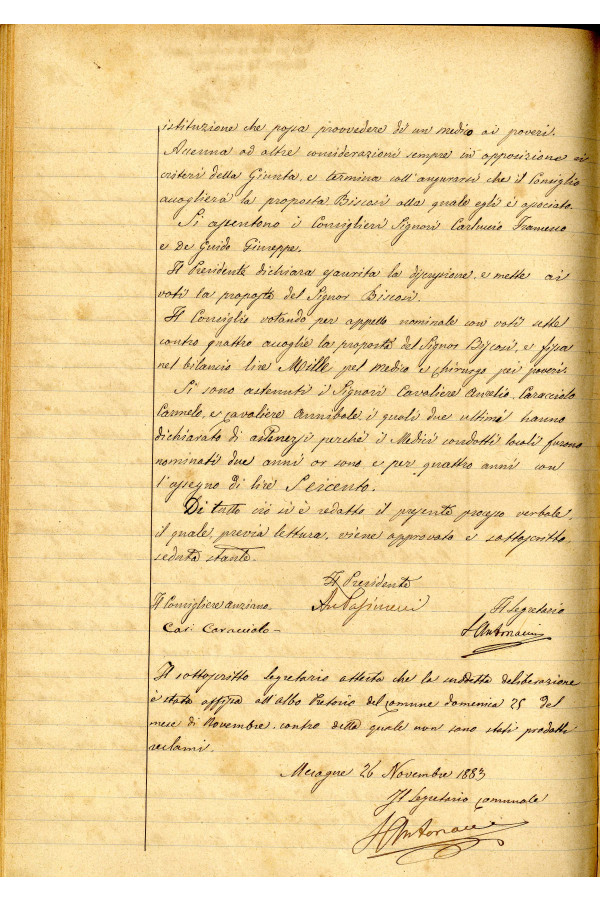 istituzione che possa provvedere di un medico ai poveri.
Accenna ad altre considerazioni sempre in opposizione ai
criteri della Giunta, e termina coll'augurarsi che il Consiglio
accoglierà la proposta Biscosi alla quale egli è associato.
Si assentono i Consiglieri Signori Carluccio Francesco
e de Guido Giuseppe.
Il Presidente dichiara esaurita la discussione, e mette ai
voti la proposta del Signor Biscosi.
Il Consiglio votando per appello nominale con voti sette
contro quattro accoglie la proposta del Signor Biscosi, e fissa
nel bilancio lire Mille pel medico e chirurgo pei poveri.
Si sono astenuti i Signori Cavaliere Aurelio, Caracciolo
Carmelo, e Cavaliere Annibale, i quali due ultimi hanno
dichiarato di astenersi perché i Medici condotti locali furono
nominati due anni or sono e per quattro anni con
l'assegno di lire Seicento.
Di tutto ciò si è redatto il presente processo verbale,
il quale, previa lettura, viene approvato e sottoscritto,
seduta stante.
Il Presidente
Il Consigliere anziano
Il Segretario
Car. Caracciolo
Antonacci
Il sottoscritto Segretario attesta che la suddetta deliberazione
è stata affissa all'Albo Pretorio del Comune domenica 25 del
mese di Novembre, contro della quale non sono stati prodotti
reclami.
Mesagne 26 Novembre 1883
Il Segretario Comunale
Antonacci